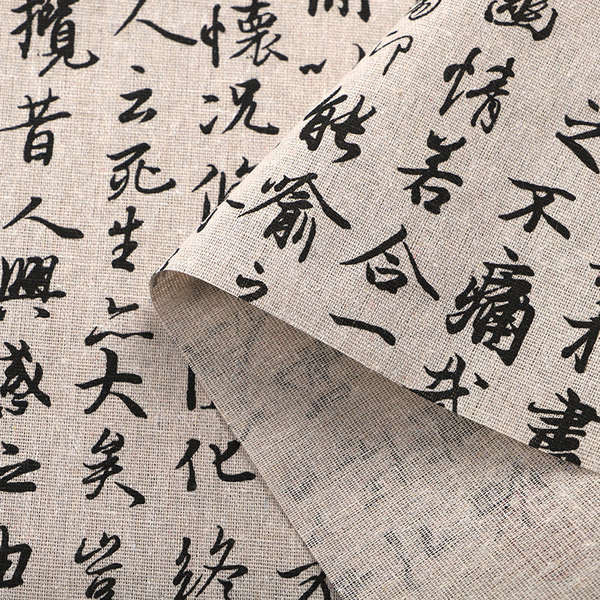 書
之不痛哉
幽情若合一
能喻之
懷況修
化終
人云死生亦大矣豈
攬昔人興感之由